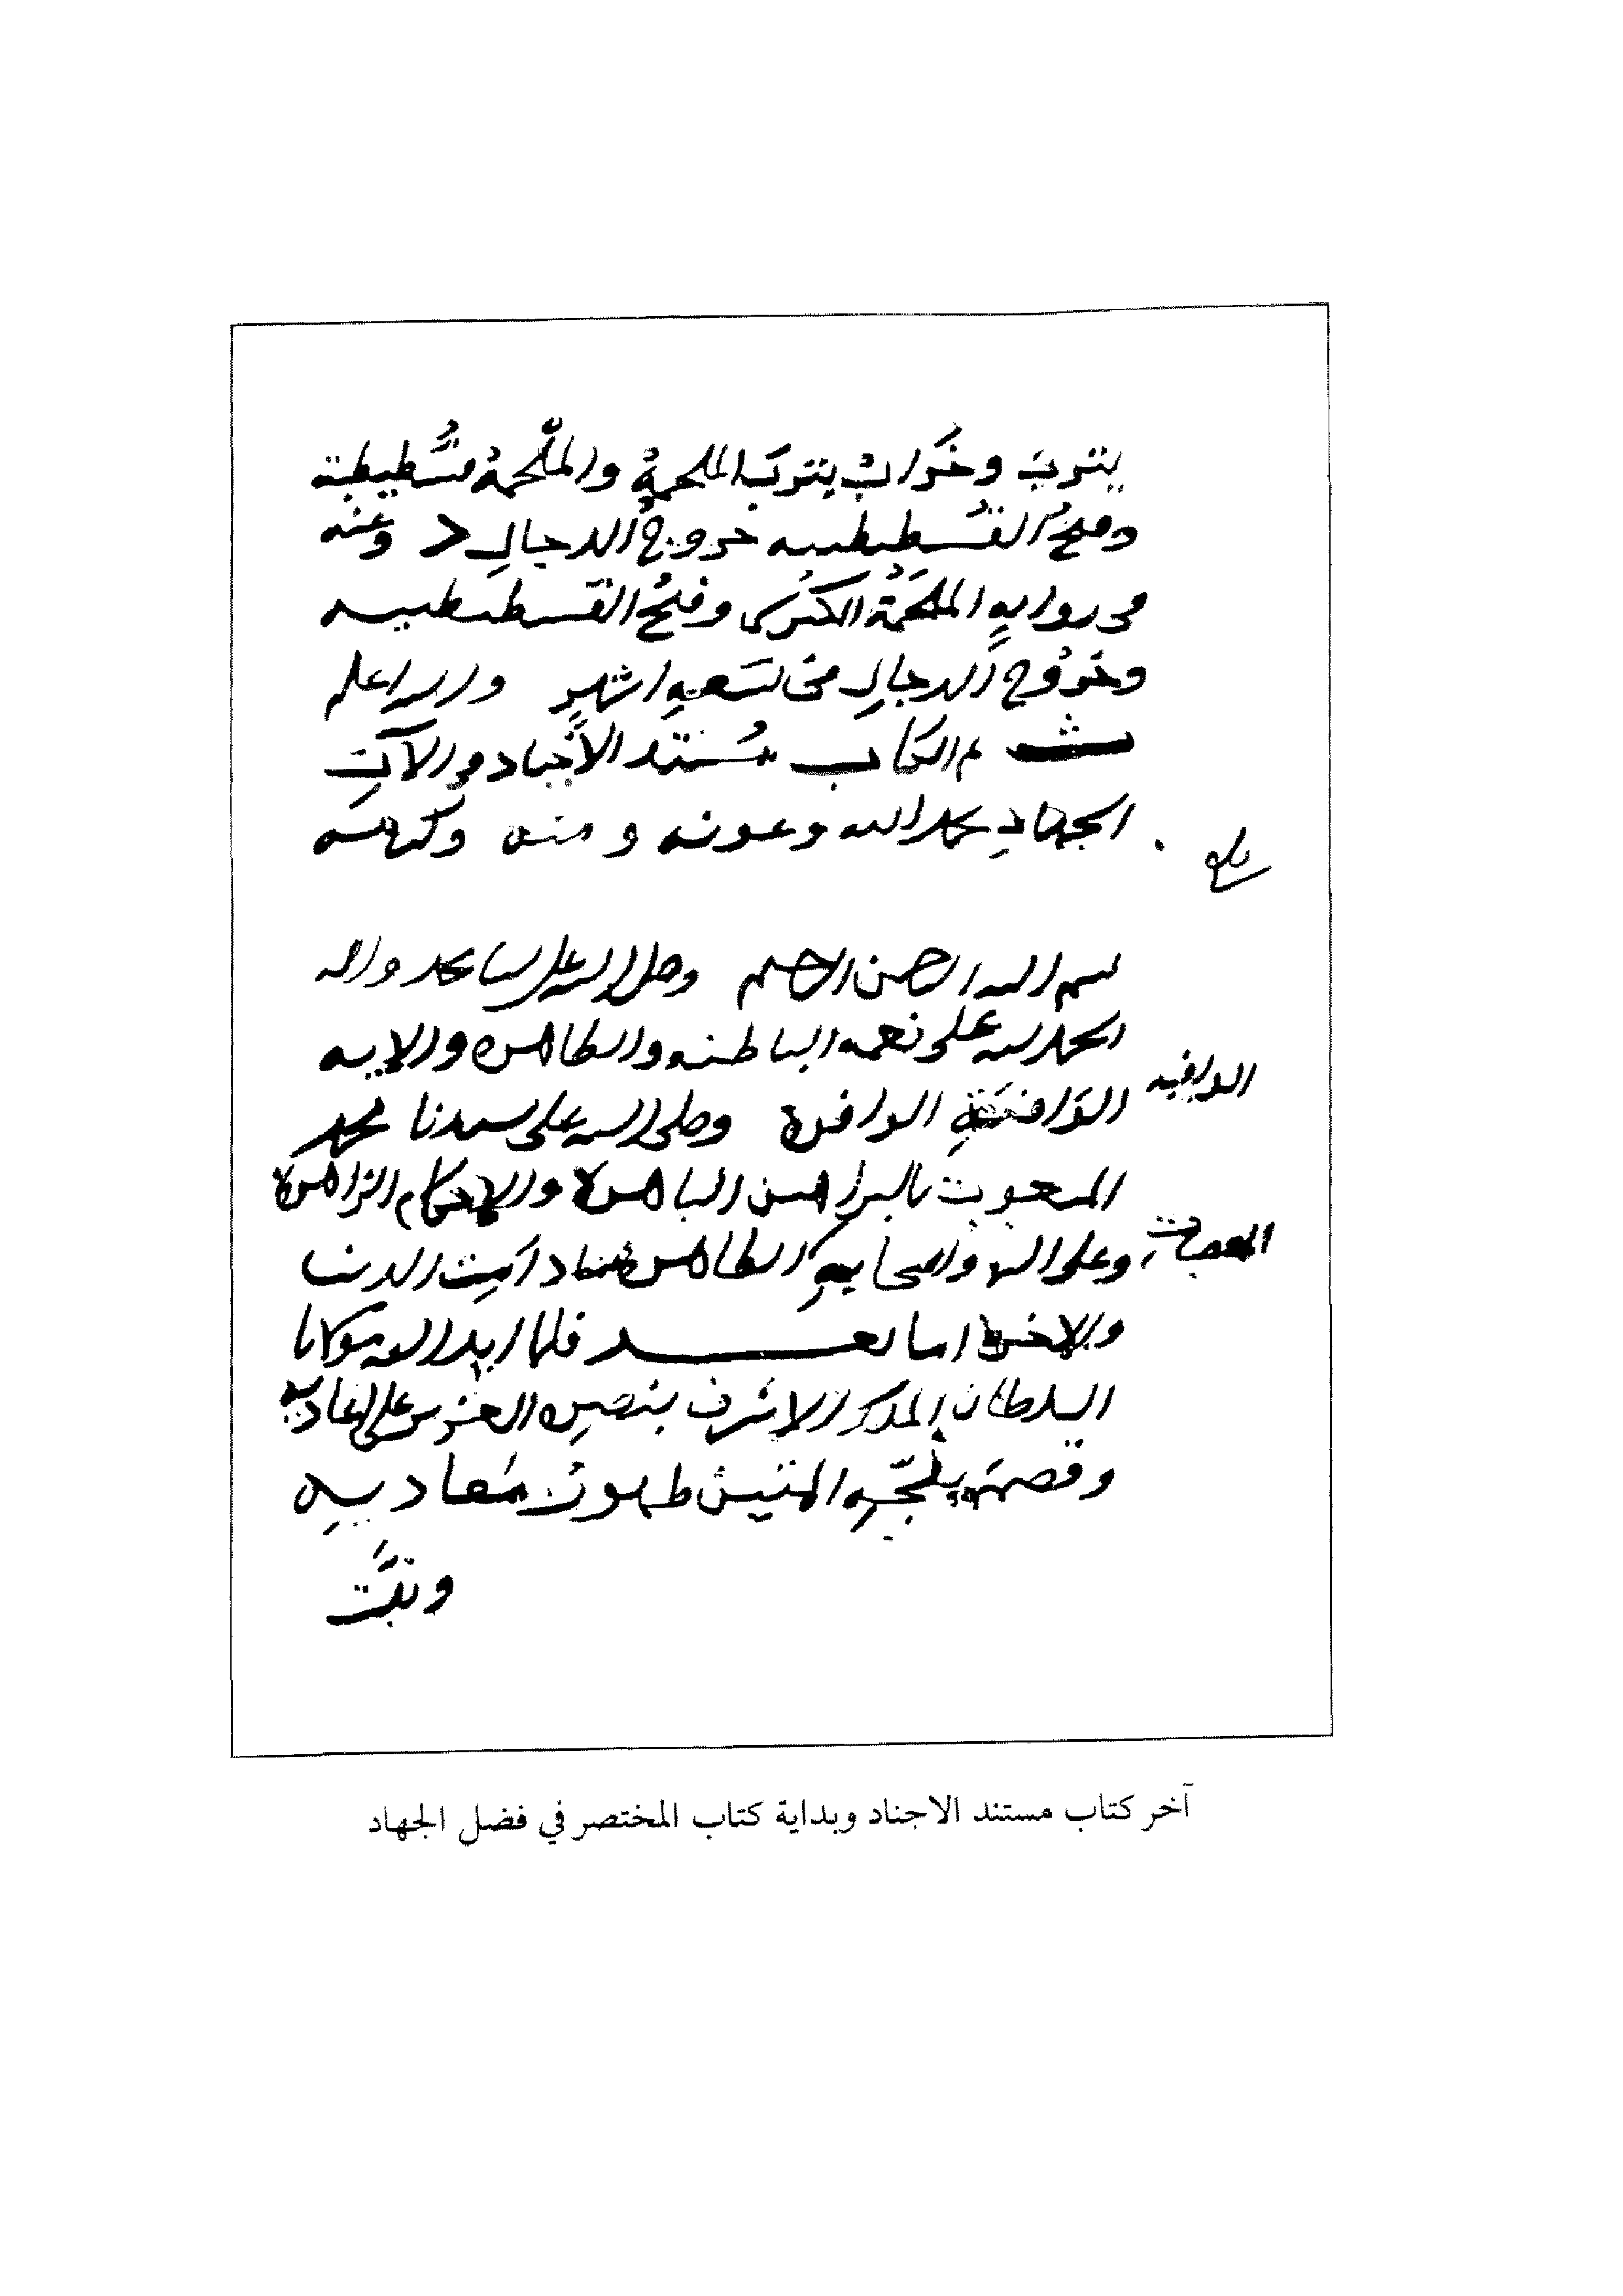 يثرب وخَرابُ يثربَ الملحمةُ والملْحمةُ قسُّطيطية
وفتحُ القُسطِنطينيه خروجُ الدجالِ د وعنه
فى روايهٍ الملحَمةُ الكبرى وفتحُ القسطنطينيه
وخرُوج الدجالِ فى تسَعهِ اشهرٍ والله اعلم
تم الكتاب مُستند الأجناد فى آلات
الجهادِ بحمد الله وعونه ومنه وكرمه
بلغ
بسم الله الرحمن الرحيم وصلى الله على سيدنا محمد واله
الحمد لله على نعمه الباطنه والظاهره والايه
الوَافيَةِ الوافرة وصلى الله على سيدنا محمد
الوافيه
المبعوث بالبراهين الباهرة والاحكام الزاهرة
وعلى اله واصحابهِ الطاهرين دامت الدنيا
المعجزات
والاخرة اما بعد فلما ايد الله مولانا
السلطان الملك الاشرف بنصرِه العزيز على اعاديه
وقصمَ المتين ظهورَ مُعاديهِ
وثبَّت
آخر كتاب مستند الاجناد وبداية كتاب المختصر في فضل الجهاد